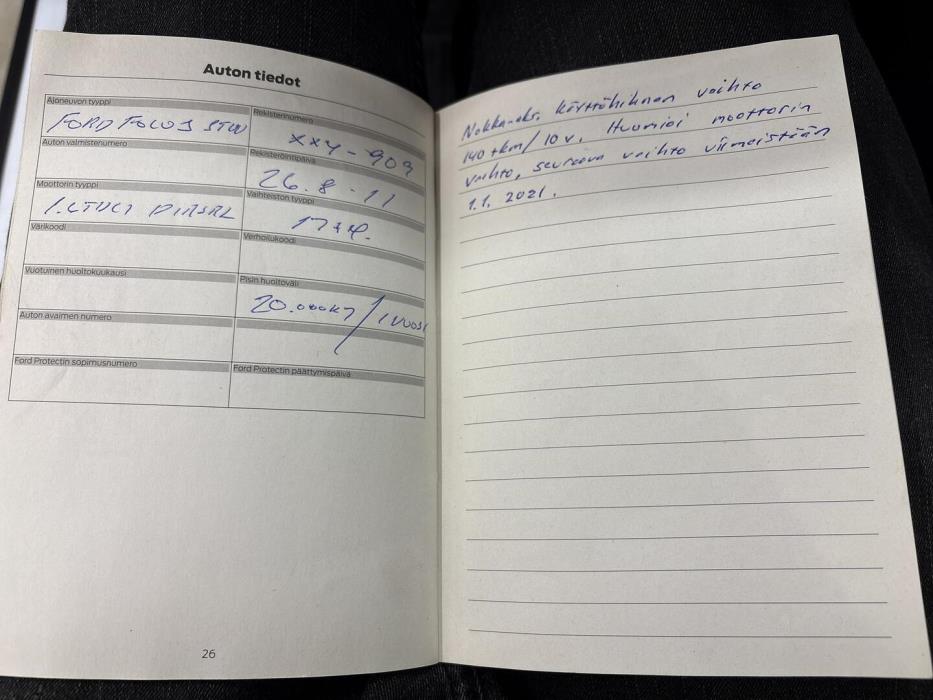 Auton tiedot
Ajoneuvon tyyppi
FORD FOCUS STW
Rekisterinumero
XXY-909
Auton valmistenumero
Rekisteröintipäivä
26.8.11
Moottorin tyyppi
1.6TDCI DIESEL
Vaihteiston tyyppi
Värikoodi
Verhoilukoodi
Vuotuinen huoltokuukausi
Pisin huoltoväli
20.000KM/1VUOSI
Auton avaimen numero
Ford Protectin sopimusnumero
Ford Protectin päättymispäivä
26
Nokka-aks. käyttöhihnan vaihto
140 tkm/10v. Huomioi moottorin
vaihto, seuraava vaihto viimeistään
1.1. 2021.